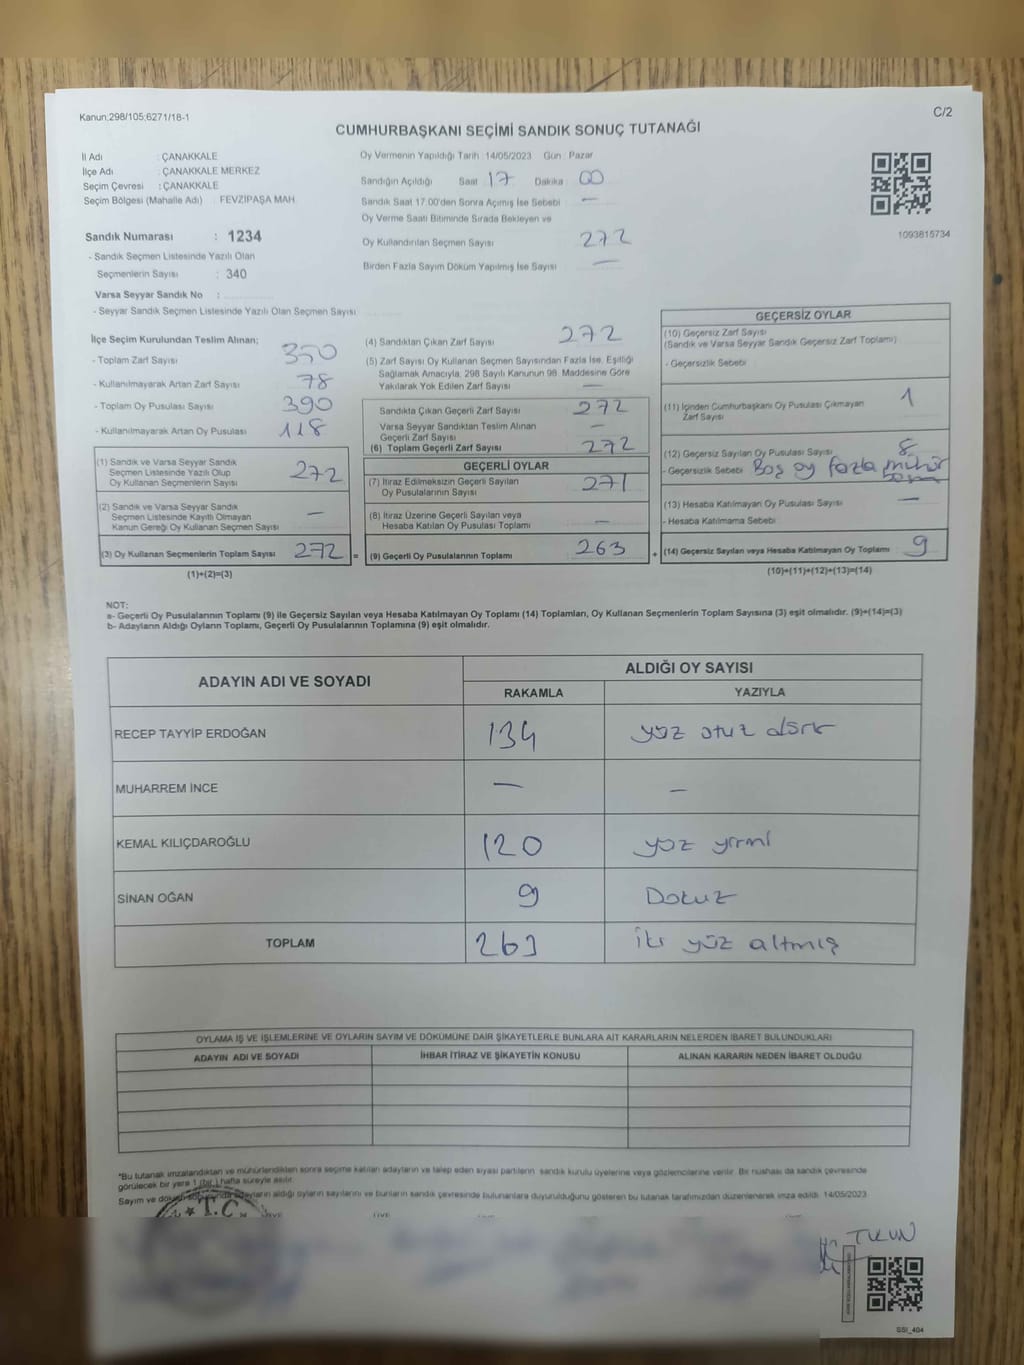 Kanun;298/105;6271/18-1
C/2
CUMHURBAŞKANI SEÇİMİ SANDIK SONUÇ TUTANAĞI
İl Adı : ÇANAKKALE
İlçe Adı : ÇANAKKALE MERKEZ
Seçim Çevresi : ÇANAKKALE
Seçim Bölgesi (Mahalle Adı) : FEVZİPAŞA MAH.
Sandık Numarası : 1234
- Sandık Seçmen Listesinde Yazılı Olan
Seçmenlerin Sayısı : 340
Varsa Seyyar Sandık No :
- Seyyar Sandık Seçmen Listesinde Yazılı Olan Seçmen Sayısı
Oy Vermenin Yapıldığı Tarih 14/05/2023 Gün Pazar
Sandığın Açıldığı Saat 17 Dakika 00
Sandık Saat 17.00'den Sonra Açılmış İse Sebebi —
Oy Verme Saati Bitiminde Sırada Bekleyen ve
Oy Kullandırılan Seçmen Sayısı 272
Birden Fazla Sayım Döküm Yapılmış İse Sayısı —
1093815734
İlçe Seçim Kurulundan Teslim Alınan;
- Toplam Zarf Sayısı 350
- Kullanılmayarak Artan Zarf Sayısı 78
- Toplam Oy Pusulası Sayısı 390
- Kullanılmayarak Artan Oy Pusulası 118
(1) Sandık ve Varsa Seyyar Sandık
Seçmen Listesinde Yazılı Olup
Oy Kullanan Seçmenlerin Sayısı 272
(2) Sandık ve Varsa Seyyar Sandık
Seçmen Listesinde Kayıtlı Olmayan
Kanun Gereği Oy Kullanan Seçmen Sayısı —
(3) Oy Kullanan Seçmenlerin Toplam Sayısı 272 =
(1)+(2)=(3)
(4) Sandıktan Çıkan Zarf Sayısı 272
(5) Zarf Sayısı Oy Kullanan Seçmen Sayısından Fazla İse, Eşitliği
Sağlamak Amacıyla, 298 Sayılı Kanunun 98. Maddesine Göre
Yakılarak Yok Edilen Zarf Sayısı —
Sandıkta Çıkan Geçerli Zarf Sayısı 272
Varsa Seyyar Sandıktan Teslim Alınan
Geçerli Zarf Sayısı —
(6) Toplam Geçerli Zarf Sayısı 272
GEÇERLİ OYLAR
(7) İtiraz Edilmeksizin Geçerli Sayılan
Oy Pusulalarının Sayısı 271
(8) İtiraz Üzerine Geçerli Sayılan veya
Hesaba Katılan Oy Pusulası Toplamı —
(9) Geçerli Oy Pusulalarının Toplamı 263 +
GEÇERSİZ OYLAR
(10) Geçersiz Zarf Sayısı
(Sandık ve Varsa Seyyar Sandık Geçersiz Zarf Toplamı)
- Geçersizlik Sebebi
(11) İçinden Cumhurbaşkanı Oy Pusulası Çıkmayan 1
Zarf Sayısı
(12) Geçersiz Sayılan Oy Pusulası Sayısı 8
- Geçersizlik Sebebi Boş oy fazla mühür
(13) Hesaba Katılmayan Oy Pusulası Sayısı —
- Hesaba Katılmama Sebebi
(14) Geçersiz Sayılan veya Hesaba Katılmayan Oy Toplamı 9
(10)+(11)+(12)+(13)=(14)
NOT:
a- Geçerli Oy Pusulalarının Toplamı (9) ile Geçersiz Sayılan veya Hesaba Katılmayan Oy Toplamı (14) Toplamları, Oy Kullanan Seçmenlerin Toplam Sayısına (3) eşit olmalıdır. (9)+(14)=(3)
b- Adayların Aldığı Oyların Toplamı, Geçerli Oy Pusulalarının Toplamına (9) eşit olmalıdır.
ADAYIN ADI VE SOYADI
ALDIĞI OY SAYISI
RAKAMLA YAZIYLA
RECEP TAYYİP ERDOĞAN 134 yüz otuz dört
MUHARREM İNCE — —
KEMAL KILIÇDAROĞLU 120 yüz yirmi
SİNAN OĞAN 9 Dokuz
TOPLAM 263 iki yüz altmış
OYLAMA İŞ VE İŞLEMLERİNE VE OYLARIN SAYIM VE DÖKÜMÜNE DAİR ŞİKAYETLERLE BUNLARA AİT KARARLARIN NELERDEN İBARET BULUNDUKLARI
ADAYIN ADI VE SOYADI İHBAR İTİRAZ VE ŞİKAYETİN KONUSU ALINAN KARARIN NEDEN İBARET OLDUĞU
*Bu tutanak imzalandıktan ve mühürlendikten sonra seçime katılan adayların ve talep eden siyasi partilerin sandık kurulu üyelerine veya gözlemcilerine verilir. Bir nüshası da sandık çevresinde
görülecek bir yere 1 (bir) hafta süreyle asılır.
Sayım ve döküm adayların aldığı oyların sayılarını ve bunların sandık çevresinde bulunanlara duyurulduğunu gösteren bu tutanak tarafımızdan düzenlenerek imza edildi. 14/05/2023
T.C.
SSI_404